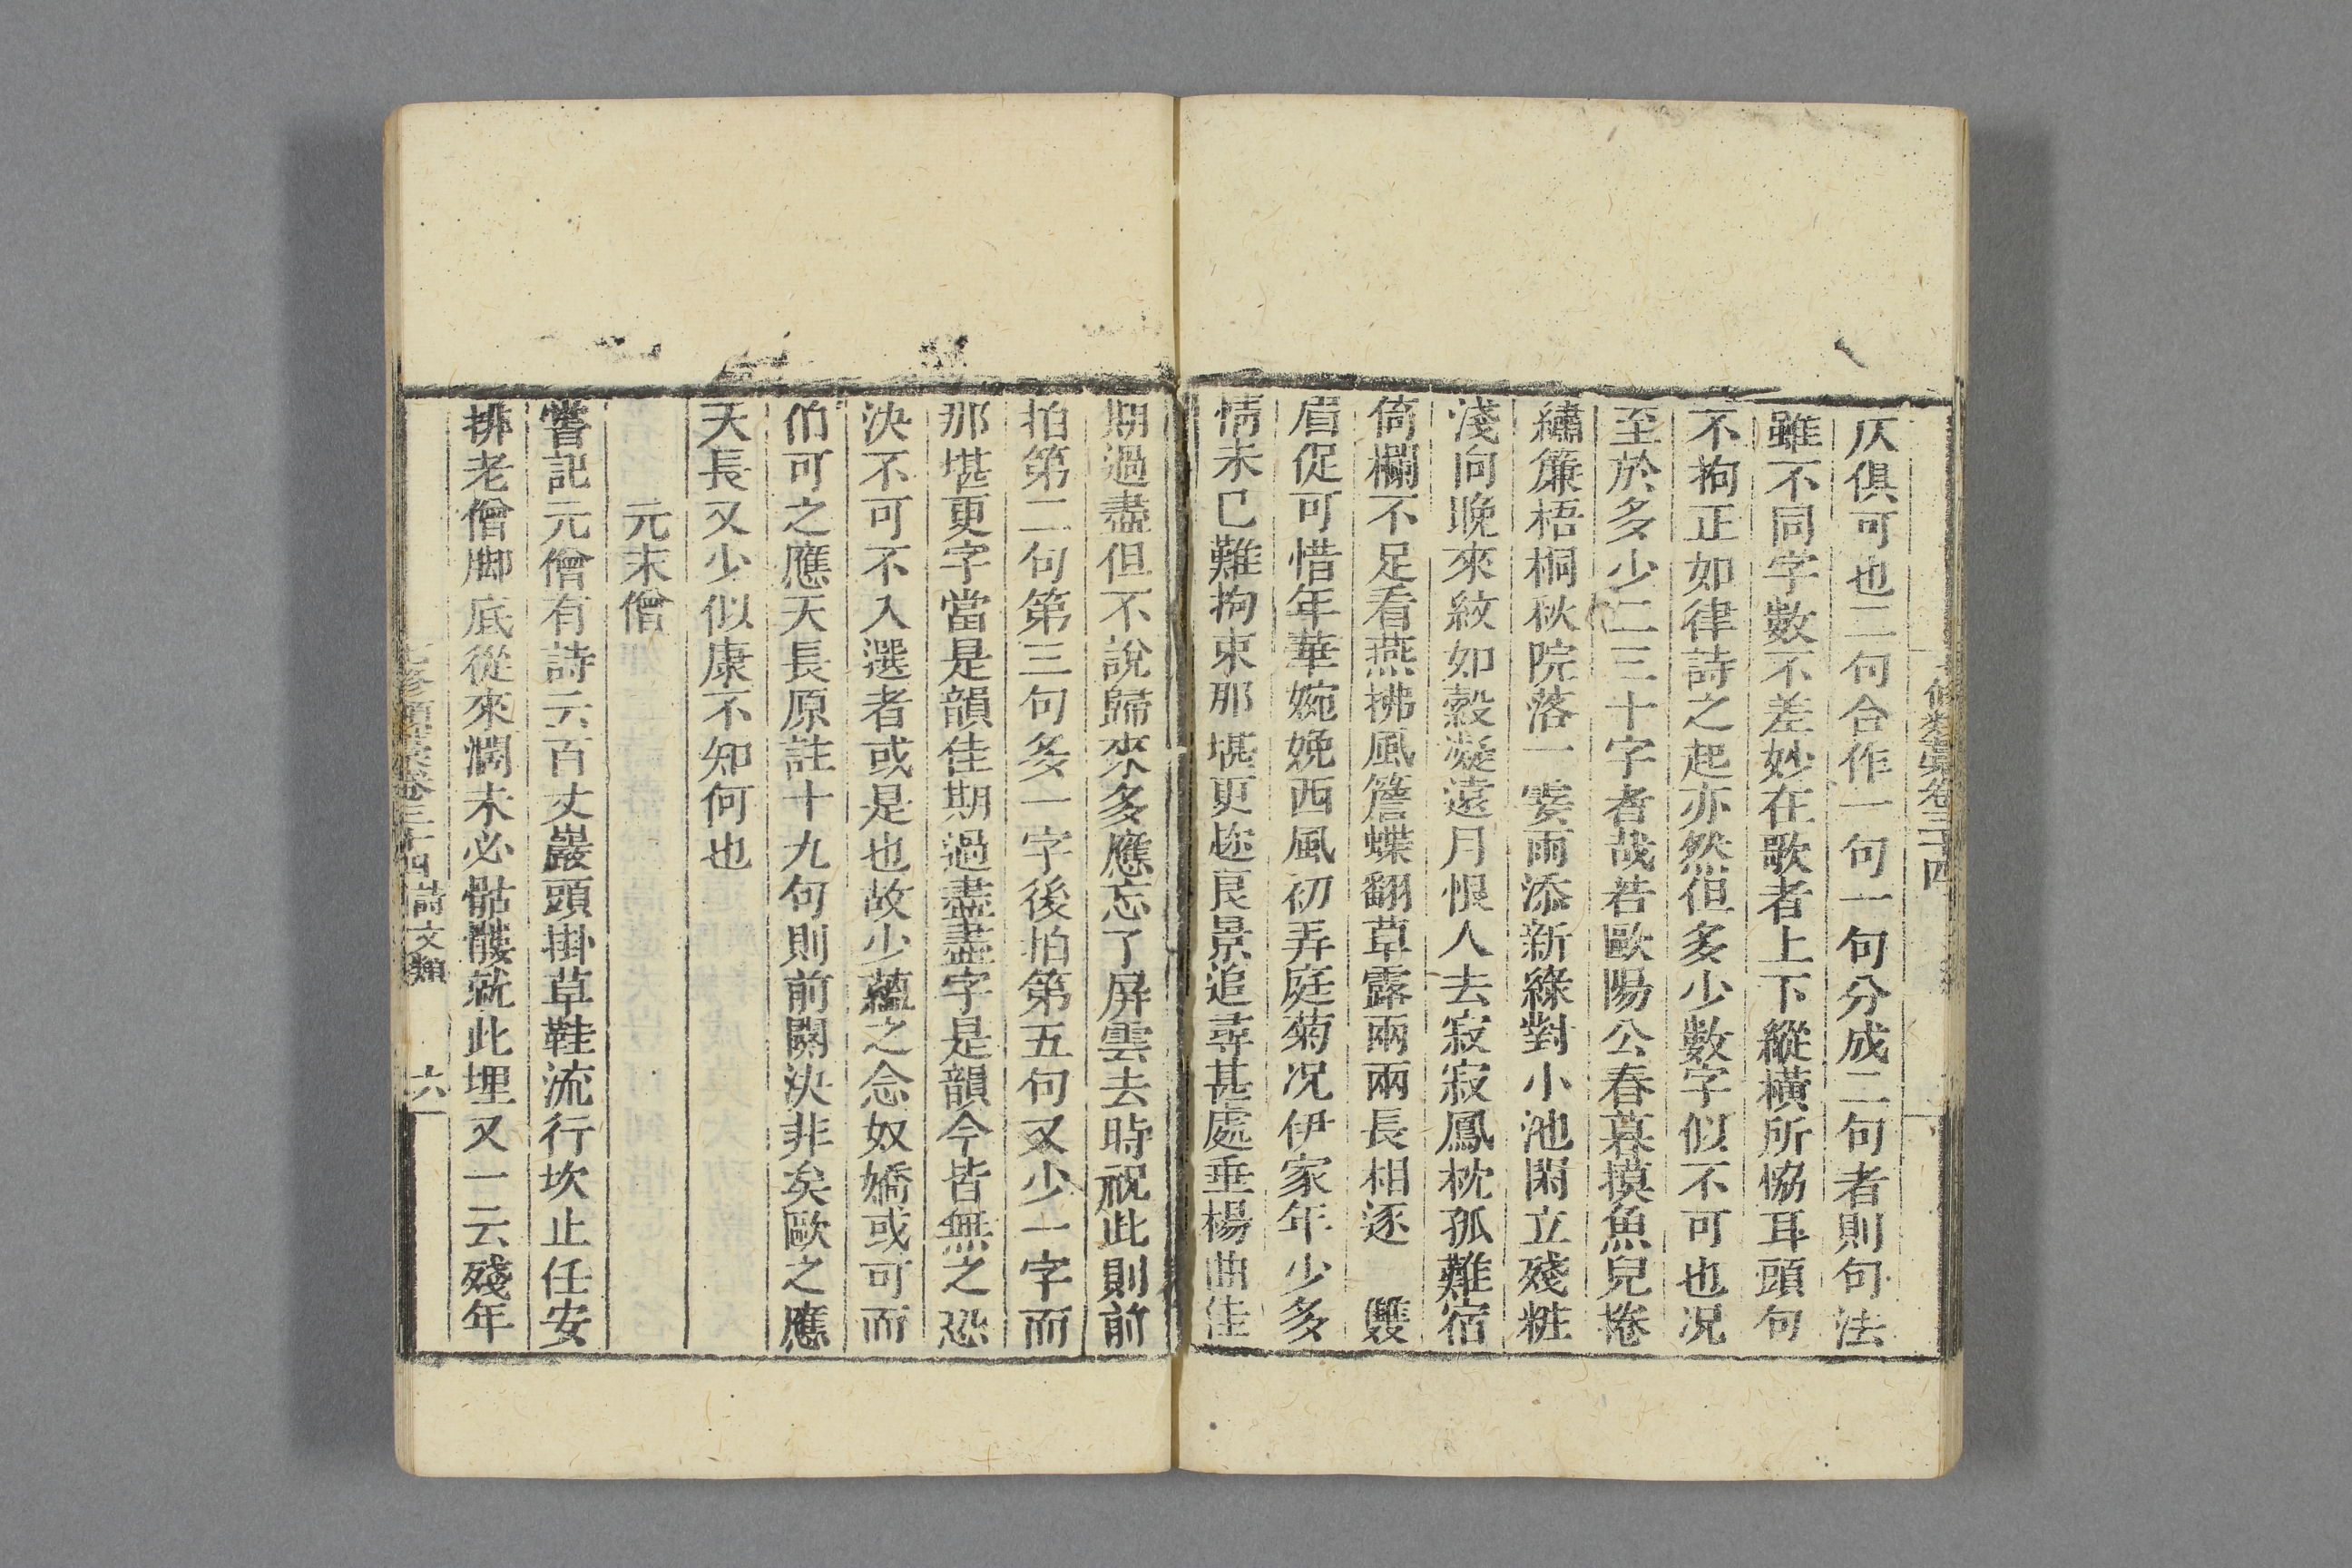 仄俱可也二句合作一句一句分成二句者則句法
雖不同字數不差妙在歌者上下縱橫所恊耳頭句
不拘正如律詩之起亦然但多少數字似不可也况
至於多少二三十字者哉若歐陽公春暮摸魚兒捲
繡簾梧桐秋院落一霎雨添新綠對小池閑立殘粧
淺向晚來紋如縠凝遠月恨人去寂寂鳳枕孤難宿
倚欄不足看燕拂風簷蝶翻草露兩兩長相逐　雙
眉促可惜年華婉娩西風初弄庭菊况伊家年少多
情未已難拘束那堪更趂良景追尋甚處垂楊曲佳
期過盡但不說歸來多應忘了屏雲去時祝此則前
拍第二句第三句多一字後拍第五句又少一字而
那堪更字當是韻佳期過盡盡字是韻今皆無之恐
決不可不入選者或是也故少蘊之念奴嬌或可而
伯可之應天長原註十九句則前闋決非矣歐之應
天長又少似康不知何也
元末僧
嘗記元僧有詩云百丈巖頭掛草鞋流行坎止任安
排老僧脚底從來濶未必骷髏就此埋又一云殘年
七修類藁卷三十四 詩文類　六